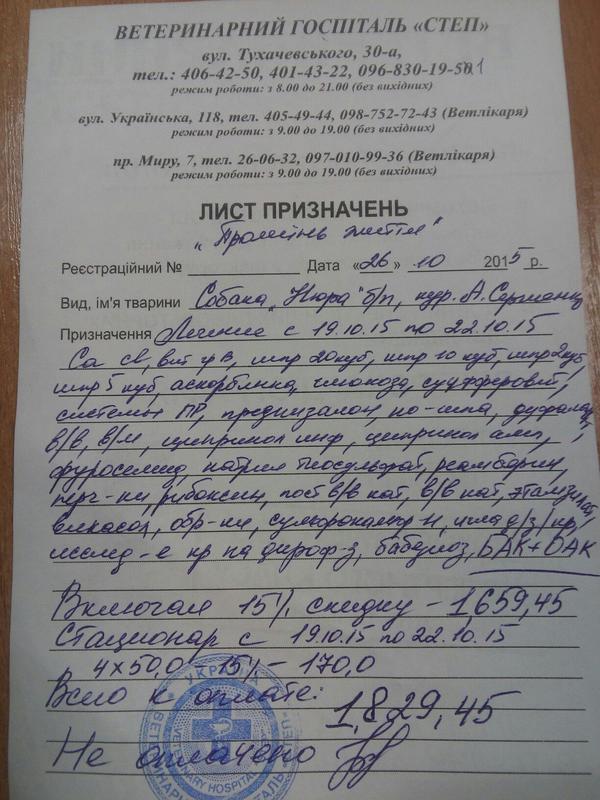 ВЕТЕРИНАРНИЙ ГОСПІТАЛЬ «СТЕП»
вул. Тухачевського, 30-а,
тел.: 406-42-50, 401-43-22, 096-830-19-51
режим роботи: з 8.00 до 21.00 (без вихідних)
вул. Українська, 118, тел. 405-49-44, 098-752-72-43 (Ветлікаря)
режим роботи: з 9.00 до 19.00 (без вихідних)
пр. Миру, 7, тел. 26-06-32, 097-010-99-36 (Ветлікаря)
режим роботи: з 9.00 до 19.00 (без вихідних)
ЛИСТ ПРИЗНАЧЕНЬ
„Промінь життя"
Реєстраційний № Дата «26» 10 2015 р.
Вид, ім'я тварини Собака „Нюра" б/п, кур. А.
Призначення Лечение с 19.10.15 по 22.10.15
вит гр В, шпр 20куб, шпр 10 куб, шпр 2куб
шпр 5 куб, аскорбинка, глюкоза,
системы ПР, преднизалон, но-шпа,
в/в, в/м, ципринол инф, ципринол амп,
фуросемид, натрия тиосульфат, реамберин,
перч-ки, рибоксин, пост в/в кат, в/в кат, этамзилат,
викасол, обр-ки, игла д/з/кр,
исслед-е кр на дироф-з, бабезиоз, БАК+ОАК
Включая 15% скидку - 1659,45
Стационар с 19.10.15 по 22.10.15
4х50,0 - 15% - 170,0
Всего к оплате: 1829,45
Не оплачено
УКРАЇНА
VETERINARY HOSPITAL